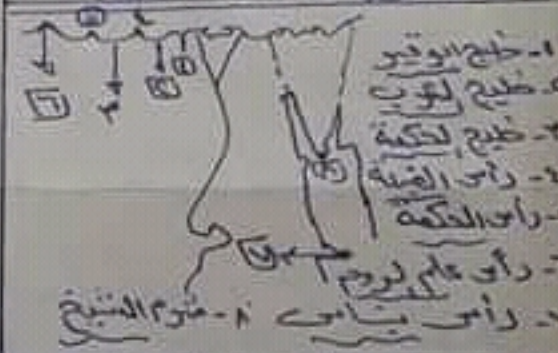 ١- خليج أبو قير
٢- خليج العرب
٣- خليج الحكمة
٤- رأس الضبعة
٥- رأس الحكمة
٦- رأس علم الروم
٧- رأس بناس ٨- شرم الشيخ